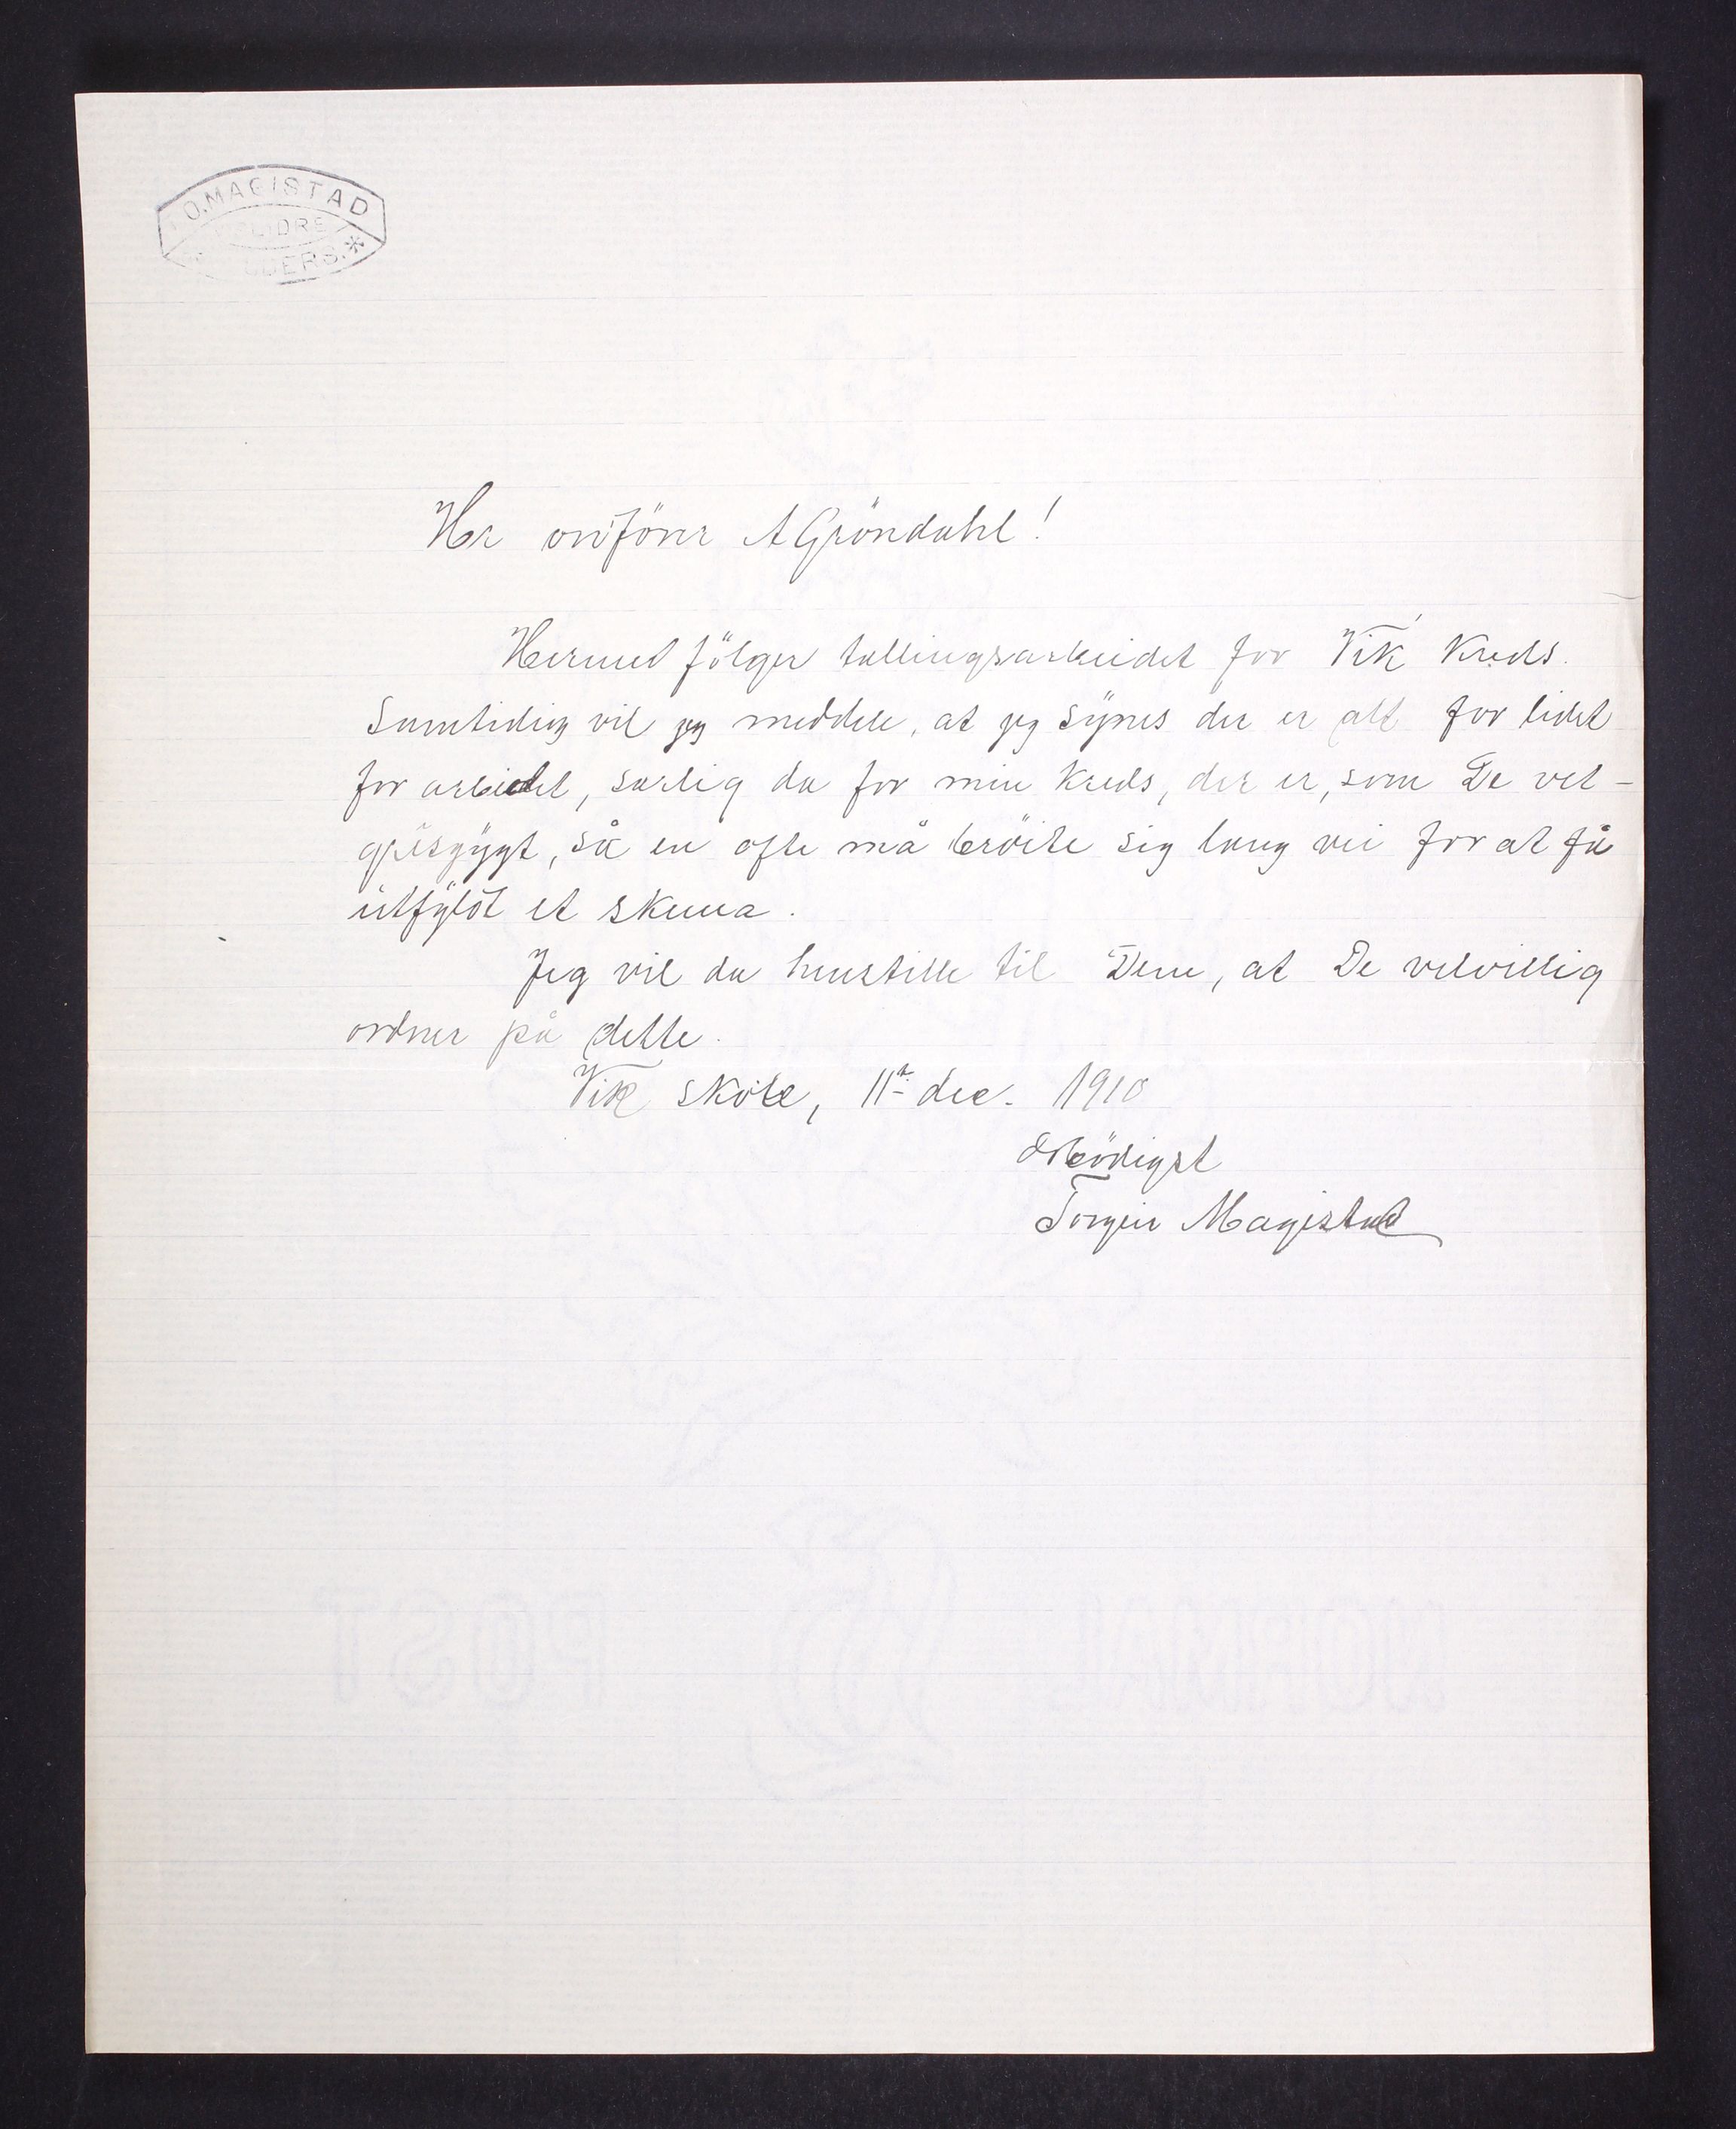 O. MAGISTAD
SLIDRE
Her ordförer A Gröndahl!
Hermed fölger tællingsarbeidet for Vik Kreds.
Samtidig vil jeg meddele, at jeg synes der er alt for lidet
for arbeidet, særlig da for min Kreds, der er, som De vet -
grisgygt, så en ofte må bröite sig lang vei for at få
utfyldt et skema.
Jeg vil da henstille til Dem, at De velvillig
ordner på dette.
Vik skole, 11te dec. 1910
Ærbödigst
Torgeir Magistad
NORMAL POST